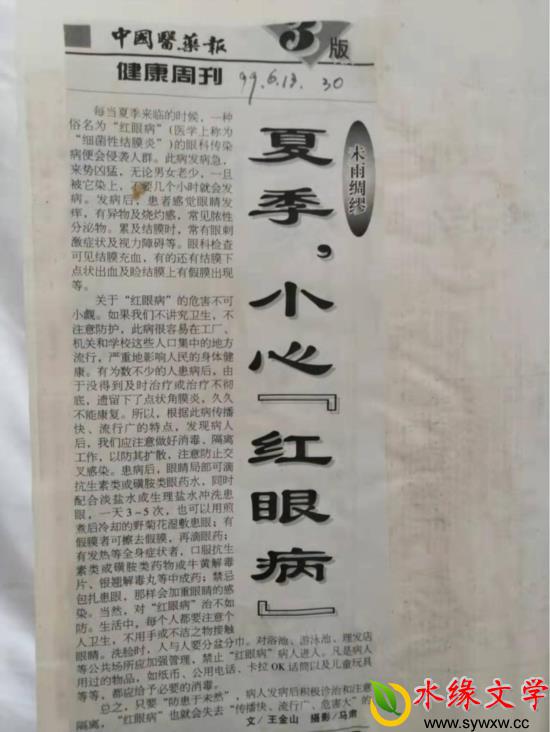 中國醫藥報
3
版
健康周刊
99.6.18. 30
未雨绸缪
夏季，小心『红眼病』
每当夏季来临的时候，一种
俗名为“红眼病”（医学上称为
“细菌性结膜炎”）的眼科传染
病便会侵袭人群。此病发病急，
来势凶猛，无论男女老少，一旦
被它染上，不要几个小时就会发
病。发病后，患者感觉眼睛发
痒，有异物及烧灼感，常见脓性
分泌物。累及结膜时，常有眼刺
激症状及视力障碍等。眼科检查
可见结膜充血，有的还有结膜下
点状出血及睑结膜上有假膜出现
等。
关于“红眼病”的危害不可
小觑。如果我们不讲究卫生，不
注意防护，此病很容易在工厂、
机关和学校这些人口集中的地方
流行，严重地影响人民的身体健
康。有为数不少的人患病后，由
于没得到及时治疗或治疗不彻
底，遗留下了点状角膜炎，久久
不能康复。所以，根据此病传播
快、流行广的特点，发现病人
后，我们应注意做好消毒、隔离
工作，以防其扩散，注意防止交
叉感染。患病后，眼睛局部可滴
抗生素类或磺胺类眼药水，同时
配合淡盐水或生理盐水冲洗患
眼，一天3～5次，也可以用煎
煮后冷却的野菊花湿敷患眼；有
假膜者可擦去假膜，再滴眼药；
有发热等全身症状者，口服抗生
素类或磺胺类药物或牛黄解毒
片、银翘解毒丸等中成药；禁忌
包扎患眼，那样会加重眼睛的感
染。当然，对“红眼病”治不如
防。生活中，每个人都要注意个
人卫生，不用手或不洁之物接触
眼睛。洗脸时，人与人要分盆分巾。对浴池、游泳池、理发店
等公共场所应加强管理，禁止“红眼病”病人进入。凡是病人
用过的物品，如纸币、公用电话、卡拉OK话筒以及儿童玩具
等等，都应给予必要的消毒。
总之，只要“防患于未然”，病人发病后积极诊治和注意
隔离，“红眼病”也就会失去“传播快、流行广、危害大”的
文／王金山 摄影／马肃
水缘文学
www.sywxw.cc